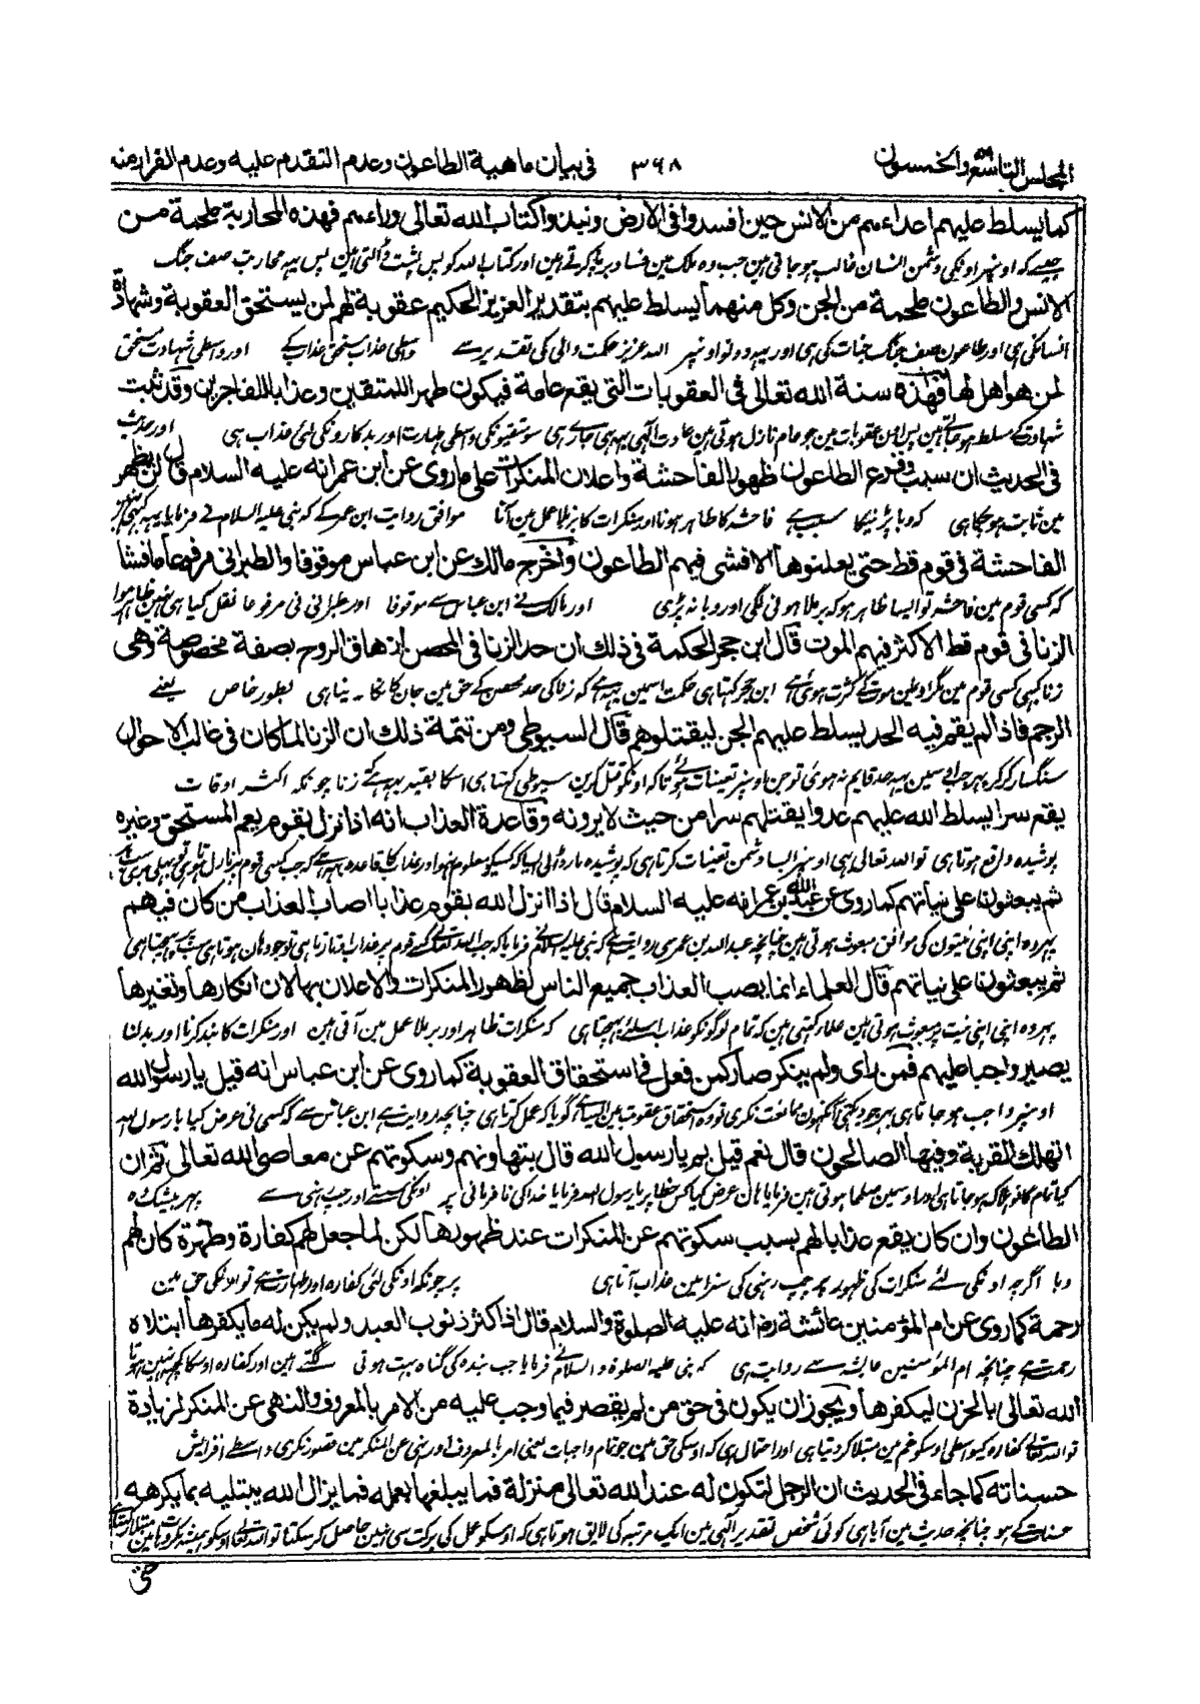 المجلس التاسع والخمسون ۳۶۸ في بيان ماهية الطاعون وعدم التقدم عليه وعدم الفرار منه
كما يسلط عليهم اعداءهم من الانس حين افسدوا فى الارض ونبذوا كتاب الله تعالى وراءهم فهذه المحاربة ملحمة من
جیسے کہ اونپر اونکی دشمن انسان غالب ہوجاتی ہین جب وہ ملک مین فساد برپا کرتے ہین اور کتاب اللہ کو پس پشت ڈالتی ہین پس یہہ محاربہ صف جنگ
الانس والطاعون ملحمة من الجن وكل منهما يسلط عليهم بتقدير العزيز الحكيم عقوبة لهم لمن يستحق العقوبة وشهادة
انسانکی ہی اور طاعون صف جنگ جنات کی ہی اور یہہ دونو اونپر اللہ عزیز حکمت والی کی تقدیر سے واسطی عذاب مستحق عذاب کے اور واسطی شہادت مستحق
لمن هو اهل لها فهذه سنة الله تعالى فى العقوبات التى يقع عامة فيكون طهرا للمتقين وعذابا للفاجرين وقد ثبت
شہادت کے مسلط ہوجاتے ہین پس ان عقوبات مین جو عام نازل ہوتی ہین عادت الٰہی یہہ ہی جاری ہی سو متقیونکی واسطی طہارت اور بدکارونکی لئی عذاب ہی اور حدیث
فى الحديث ان سبب وقوع الطاعون ظهور الفاحشة واعلان المنكرات على ما روى عن ابن عمر انه عليه السلام قال لن يظهر
مین ثابت ہوچکا ہی کہ وبا پڑنیکا سبب ہے فاحشہ کا ظاہر ہونا اور منکرات کا برملا عمل مین آنا موافق روایت ابن عمر کے کہ نبی علیہ السلام نے فرمایا یہہ کبھی نہین
الفاحشة فى قوم قط حتى يعلنوها الا فشى فيهم الطاعون واخرج مالك عن ابن عباس موقوفا والطبرانى مرفوعا ما فشا
کہ کسی قوم مین فاحشہ تو ایسا ظاہر ہو کہ برملا ہونی لگی اور وبا نہ پڑی اور مالک نے ابن عباس سے موقوفا اور طبرانی نی مرفوعا نقل کیا ہی نہین ظاہر ہوا
الزنا فى قوم قط الا كثر فيهم الموت قال ابن حجر الحكمة فى ذلك ان حد الزنا فى المحصن ازهاق الروح بصفة مخصوصة وهى
زنا کبہی کسی قوم مین مگر اونمین موت کی کثرت ہوئی ہے ابن حجر کہتا ہی حکمت اسمین یہہ ہے کہ زنا کی حد محصن کے حق مین جان کا نکالنا ہی بطور خاص یعنے
الرجم فاذا لم يقم فيه الحد يسلط عليهم الجن ليقتلوهم قال السيوطى ومن تتمة ذلك ان الزنا لما كان فى غالب الاحوال
سنگسار کرکر پہر جب اسمین یہہ حد قایم نہ ہوئی تو جن اونپر تعینات ہوئے تاکہ اونکو قتل کرین سیوطی کہتا ہی اسکا بقیہ یہہ ہے کہ زنا چونکہ اکثر اوقات
يقع سرا يسلط الله عليهم عدوا يقتلهم سرا من حيث لا يرونه وقاعدة العذاب انه اذا نزل بقوم يعم المستحق وغيره
پوشیدہ واقع ہوتا ہی تو اللہ تعالی بہی اونپر ایسا دشمن تعینات کرتا ہی کہ پوشیدہ مار ڈالی ایسا کہ کسیکو معلوم نہو اور عذاب کا قاعدہ یہہ ہے کہ جب کسی قوم پر نازل ہوتا ہی
ثم يبعثون على نياتهم كما روى عن عبد الله بن عمر انه عليه السلام قال اذا انزل الله بقوم عذابا اصاب العذاب من كان فيهم
پہر وہ اپنی اپنی نیتون کی موافق مبعوث ہوتی ہین چنانچہ عبداللہ بن عمر سے روایت ہے کہ نبی علیہ السلام نے فرمایا کہ جب اللہ تعالے کسی قوم پر عذاب اوتارتا ہی تو جو وہان ہوتا ہی سب کو پہنچتا ہی
ثم يبعثون على نياتهم قال العلماء انما يصب العذاب جميع الناس لظهور المنكرات والاعلان بها لان انكارها وتغيرها
پہر وہ اپنی اپنی نیت پر مبعوث ہوتی ہین علماء کہتی ہین کہ تمام لوگونکو عذاب اسلئے پہنچتا ہی کہ منکرات ظاہر اور برملا عمل مین آتی ہین اور منکرات کا بند کرنا اور بدلنا
يصير واجبا عليهم فمن راى ولم ينكر صار كمن فعل فى استحقاق العقوبة كما روى عن ابن عباس انه قيل يا رسول الله
اونپر واجب ہو جاتا ہی پہر جو دیکہتی آنکہون ممانعت نکری تو وہ مستحقاق عقوبت مین ایسا ہے گویا کہ عمل کرتا ہی چنانچہ روایت ہے ابن عباس سے کہ کسی نی عرض کیا یا رسول اللہ
اتهلك القرية وفيها الصالحون قال نعم قيل بم يا رسول الله قال بتهاونهم وسكوتهم عن معاصى الله تعالى ثم ان
کیا تمام گانو ہلاک ہو جاتا ہی اور اوسمین صلحا ہوتی ہین فرمایا ہان عرض کیا کس خطا پر یا رسول اللہ فرمایا خدا کی نافرمانی پر اونکی سستے اور چپ رہنی سے پہر بیشک
الطاعون وان كان يقع عذابا لهم بسبب سكوتهم عن المنكرات عند ظهورها لكن لما جعل لهم كفارة وطهرة كان لهم
وبا اگرچہ اونکی لئے منکرات کی ظہور پر چپ رہنی کی سزا مین عذاب آتا ہی پر چونکہ اونکی لئی کفارہ اور طہارت ہے تو اونکی حق مین
رحمة كما روى عن ام المؤمنين عائشة رضـ انه عليه الصلوة والسلام قال اذا كثر ذنوب العبد ولم يكن له ما يكفرها ابتلاه
رحمت ہے چنانچہ ام المؤمنین عایشہ سے روایت ہی کہ نبی علیہ الصلوۃ والسلام نے فرمایا جب بندہ کی گناہ بہت ہوتی لگتے ہین اور کفارہ اوسکا کچہہ نہین ہوتا
الله تعالى بالحزن ليكفرها ويجوز ان يكون فى حق من لم يقصر فيما وجب عليه من الامر بالمعروف والنهى عن المنكر لزيادة
تو اللہ تعالے کفارہ کیواسطی اوسکو غم مین مبتلا کر دیتا ہی اور احتمال ہی کہ اوسکی حق مین جو تمام واجبات یعنی امر بالمعروف اور نہی عن المنکر مین قصور نکری واسطے افزایش
حسناته كما جاء فى الحديث ان الرجل لتكون له عند الله تعالى منزلة فما يبلغها بعمله فما يزال الله يبتليه بما يكرهه
حسنات کے ہو چنانچہ حدیث مین آیا ہی کوئی شخص تقدیر الٰہی مین ایک مرتبہ کی لایق ہوتا ہی کہ اوسکو عمل کی برکت سی نہین حاصل کر سکتا تو اللہ تعالی اوسکو ہمیشہ مکروہات مین مبتلا رکہتا ہے
حتى